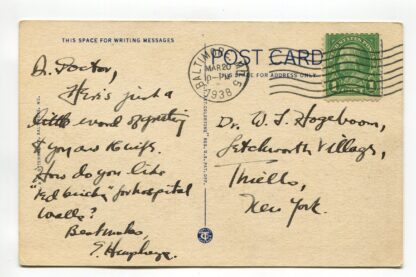 THIS SPACE FOR WRITING MESSAGES
POST CARD
THIS SPACE FOR ADDRESS ONLY
BALTIMORE, MD.
MAR 20
1938
Dr. Doctor,
Here's just a
little word of greeting
if you are
How do you like
"red bricks" for hospital
walls?
Best wishes,
Humphreys.
Dr. W. T. Hogeboom,
Letchworth Village,
Thiells,
New York.